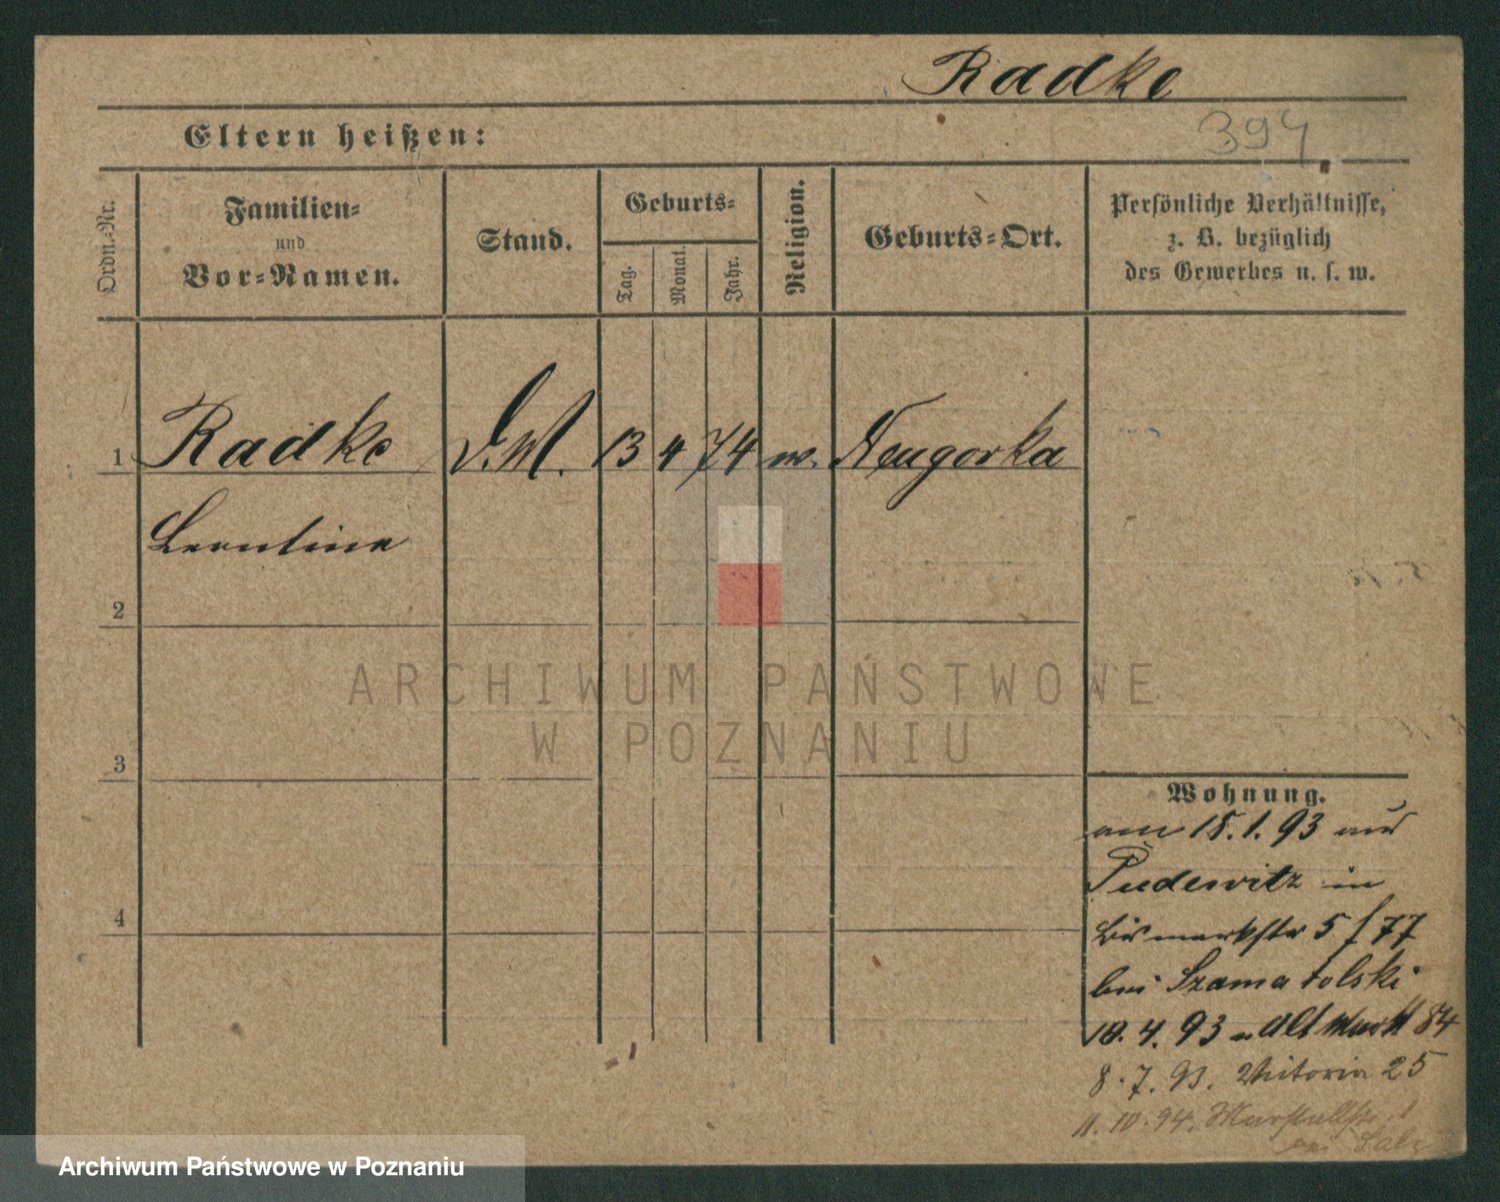 Radke
394
Eltern heißen:
Ordn.-Nr.
Familien-
und
Vor-Namen.
Stand.
Geburts-
Tag.
Monat.
Jahr.
Religion.
Geburts-Ort.
Persönliche Verhältnisse,
z. B. bezüglich
des Gewerbes u. s. w.
1 Radke D.M. 13 4 74 ev. Neugorka
Leontine
2
3
4
ARCHIWUM PAŃSTWOWE
W POZNANIU
Wohnung.
am 18.1.93 aus
Pudewitz in
Bismarkstr 5 / 77
bei Szamatolski
10.4.93 n Alt Markt 84
8.7.93. Viktoria 25
11.10.94. Marstallstr.
bei
Archiwum Państwowe w Poznaniu